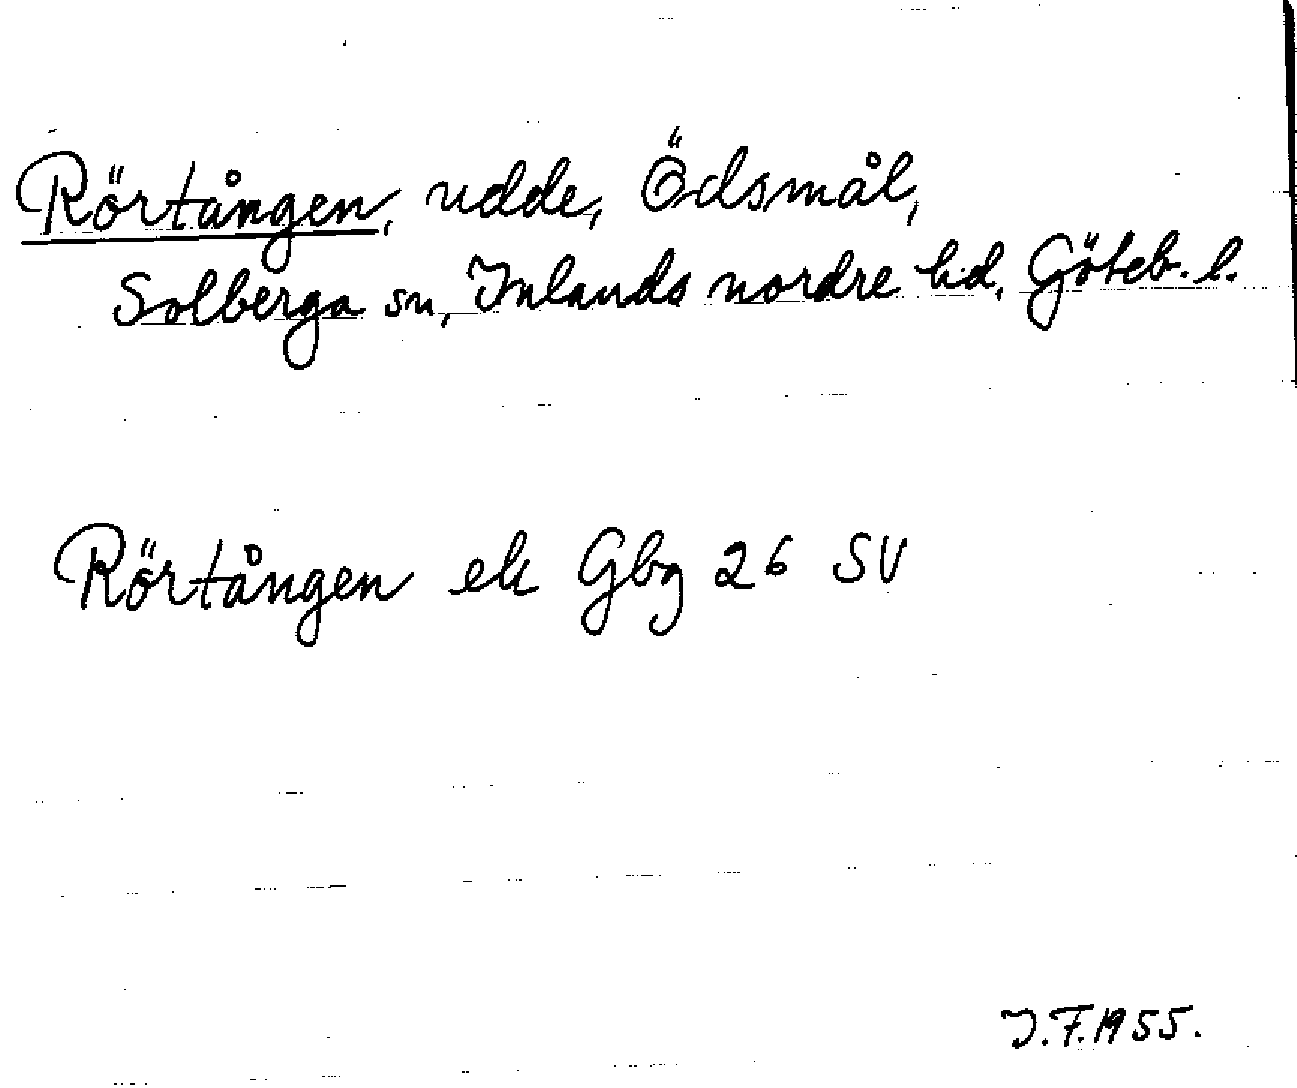 Rörtången, udde, Ödsmål,
Solberga sn, Inlands nordre hd, Göteb. l.
Rörtången ek Gbg 26 SV
J.F.1955.